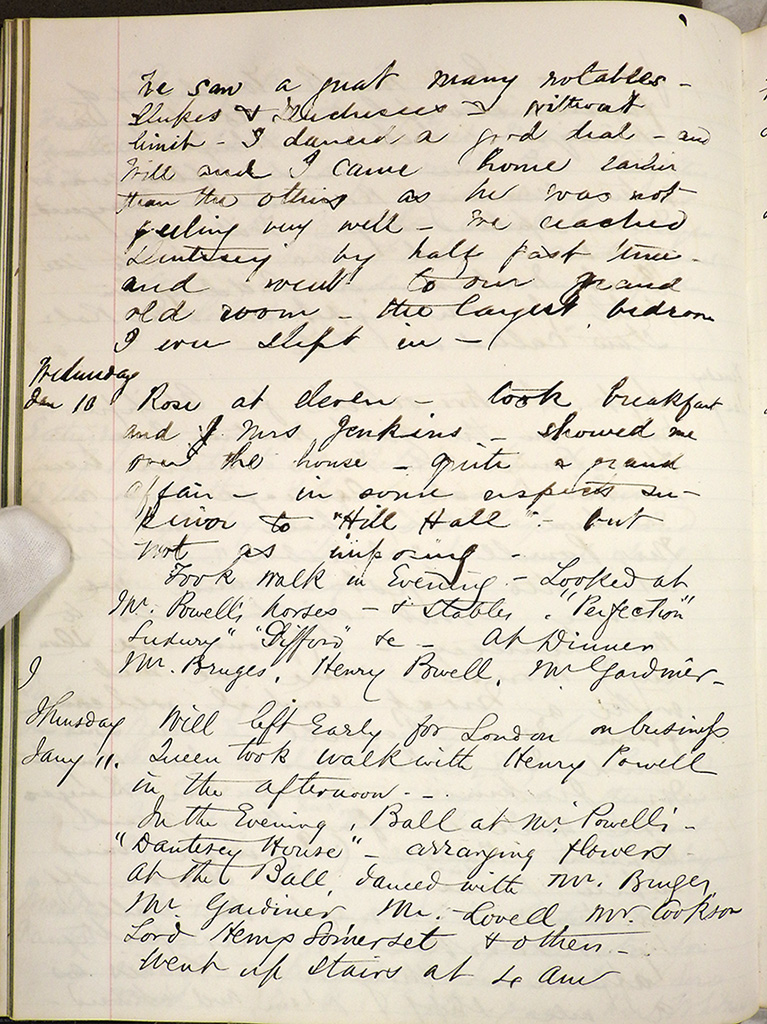 We saw a great many notables -
Dukes & Duchesses - without
limit - I danced a good deal - and
Will and I came home earlier
than the others as he was not
feeling very well - We reached
Dantesey by half past three -
and went to our grand
old room - the largest bedroom
I ever slept in -
Wednesday
Jan 10 Rose at eleven - took breakfast
and Mrs Jenkins - showed me
over the house - quite a grand
affair - in some aspects su-
perior to "Hill Hall" - but
not as imposing -
Took walk in Evening - Looked at
Mr. Powell's horses - & stables. "Perfection"
Luxury" &c - At Dinner
Mr. Bruges, Henry Powell, Mr Gardiner -
Thursday Will left Early for London on business
Jany 11. Queen took walk with Henry Powell
in the afternoon -
In the Evening, Ball at Mr. Powell's -
"Dantesey House" - arranging flowers
At the Ball, danced with Mr. Bruges,
Mr. Gardiner Mr. Lovell Mr. Cookson
Lord Somerset & others -
Went up stairs at 4 Am